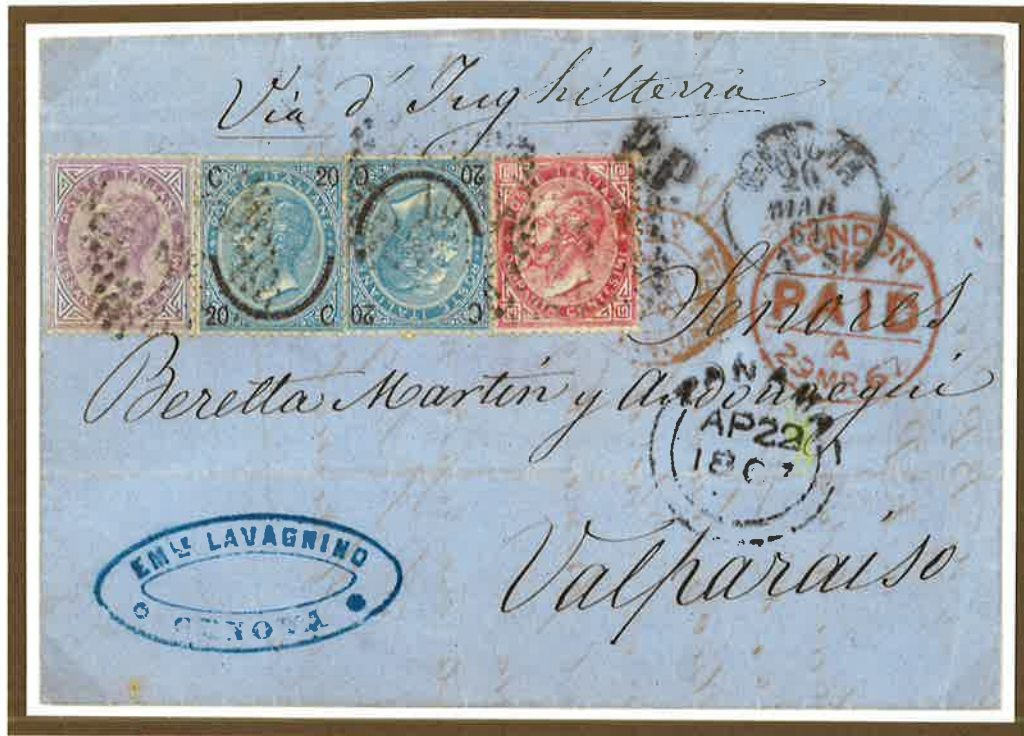 Via d' Inghilterra
C 20
20 C
C 20
20 C
P.D.
GENOVA
26
MAR
LONDON
PAID
A
29 MR 67
Señores
Beretta Martin y Andonaegui
PANAMA
AP 22
1867
Valparaiso
EMLE LAVAGNINO
GENOVA